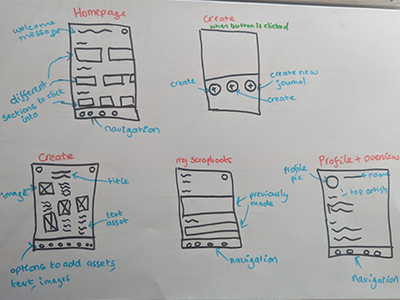 Homepage
welcome
message
different
sections to click
into
navigation
Create
when button is clicked
create
create new
journal
create
Create
image
title
text
asset
options to add assets,
text, images
my scrapbooks
previously
made
navigation
Profile + overview
profile
pic
name
top artists
navigation